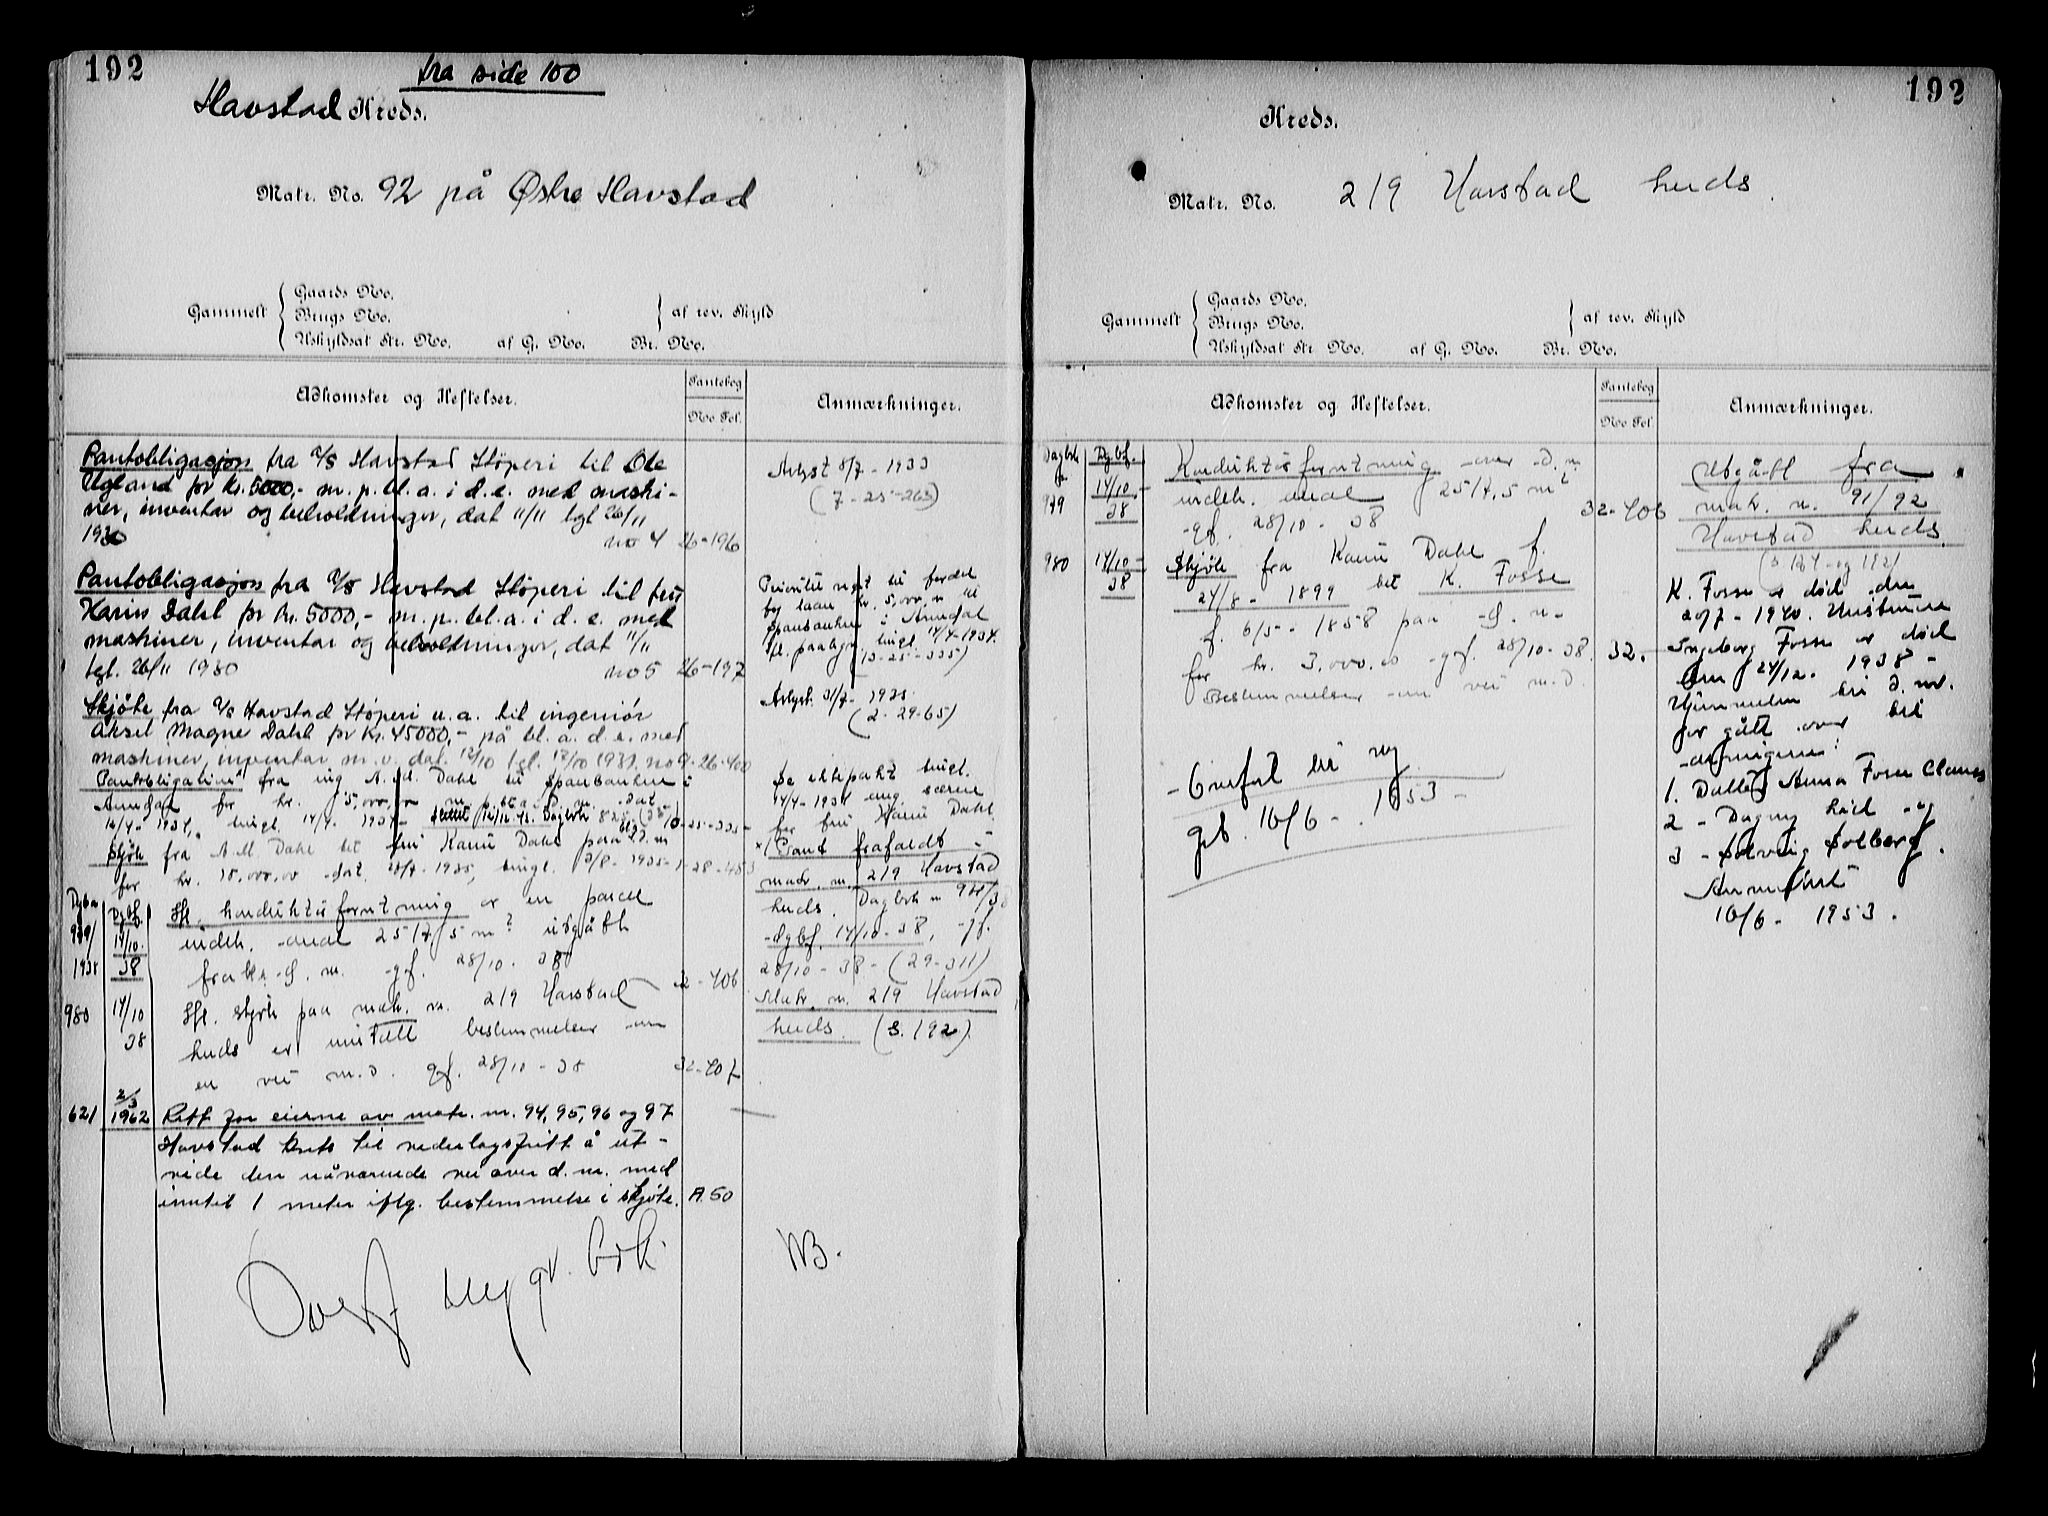 192
fra side 100
Havstad Kreds.
Matr. No. 92 på Østre Havstad
Gaards No.
Gammelt Brugs No. af rev. Skyld
Uskyldsat Str. No. af G. No. Br. No.
Adkomster og Heftelser.
Pantebog
No Fol.
Anmærkninger.
Pantobligasjon fra A/S Havstad Støperi til Ole
Ugland for kr. 5000,- m. p. bl. a. i d. e. med maski-
ner, inventar og beholdninger, dat 11/11 tgl 26/11
1930 no 4 26-196
Avlyst 8/7 - 1933
(7-25-263)
Pantobligasjon fra A/S Havstad Støperi til frk.
Karin Dahl for kr. 5000,- m. p. bl. a. i d. e. med
maskiner, inventar og beholdninger, dat 11/11
tgl. 26/11 1930 no 5 26-197
Prioritet veget til fordel
for laan kr. 5,000,00 til
Sparebanken i Arendal
fl. paategn. tingl. 14/4-1934.
(10-25-335)
Avlyst 31/7 - 1935.
(2-29-65)
Skjöte fra A/S Havstad Støperi u. a. til ingeniör
Aksel Magne Dahl for kr. 45000,- på bl. a. d. e. med
maskiner, inventar m. v. dat. 12/10 tgl. 17/10 1931. no 9-26-400
Pantobligation fra ing A. M. Dahl til Sparebanken i
Arendal for kr. 5,000,00 m. p. bl. a. i D. m. dat.
14/4-1934, tingl. 14/4. 1934- 10-25-335-
Skjöte fra A. M. Dahl til fru Karin Dahl paa bl. a. D. m
for kr. 15,000,00 dat. 29/7-1935, tingl. 2/8-1935- 1-28-453
Se ektepakt tingl.
14/4-1934 ang. særeie
for fru Karin Dahl
x/ Pant frafaldt i
matr. n. 219 Havstad
kreds. Dagbok n 941/38
dgbf. 14/10-38, gf.
28/10-38-(29-311)
Matr. n. 219 Havstad
kreds. (S. 192).
Dgbn
979/
1938
Dgbf.
14/10.
38
Ifl. konduktörforretning er en parcel
indeh. areal 2517,5 m² utgått
fra bl. a. d. m. gf. 28/10. 38
32-406
980 14/10 38
Ifl. skjöte paa matr. n. 219 Havstad
kreds er inntatt bestemmelser om
en vei m. D. gf. 28/10-38
32-407
621 2/3 1962 Rett for eierne av matr. nr. 94, 95, 96 og 97
Havstad krets til vederlagsfritt å ut-
vide den nåværende vei over d. m. med
inntil 1 meter iflg. bestemmelse i skjøte. A.50
Overf til ny gr. bok.
NB.
192
Kreds.
Matr. No. 219 Havstad kreds.
Gaards No.
Gammelt Brugs No. af rev. Skyld
Uskyldsat Str No. af G. No. Br. No.
Adkomster og Heftelser.
Pantebog
No Fol.
Anmærkninger.
Dagbk
n
979
Dgbf.
14/10-
38
Konduktörforretning over D. m
indeh. areal 2517,5 m²
gf. 28/10-38
32-406
980 14/10-38
Skjöte fra Karin Dahl f.
24/8-1899 til K. Fosse
f. 6/5-1858 paa d. m-
for kr. 3,000,00 gf. 28/10-38. 32-
Bestemmelser om vei m. D.
Utgått fra
matr. n. 91/92
Havstad kreds.
(S 184 og 192)
K. Fosse er död den
20/7-1940. Hustruen
Ingeborg Fosse er död
den 24/12. 1938-
Hjemmelen til D. m.
er gått over til
arvingene:
1. Datter Anna Fosse Clausen
2 - Dagny Röed og
3 - Solveig Solberg.
Anmerket
10/6-1953.
- Overført til ny
gb. 10/6-1953-